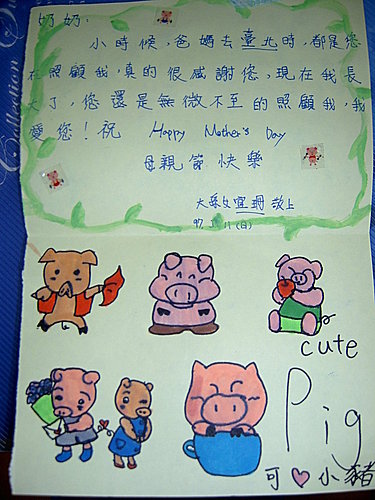 奶奶:
小時候,爸媽去臺北時,都是您
在照顧我,真的很感謝您,現在我長
大了,您還是無微不至的照顧我,我
愛您!祝 Happy Mother's Day
母親節快樂
宜珊 敬上
97. 5. 11 (日)
cute
Pig
可♥小豬